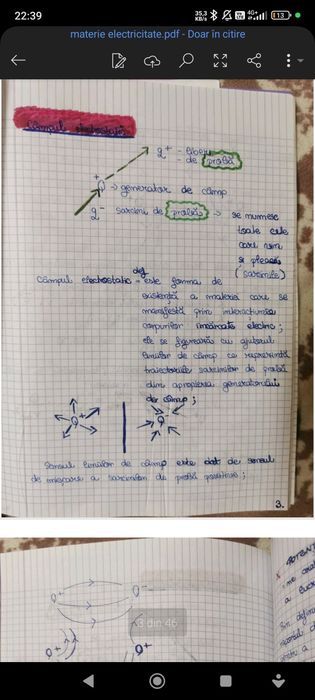 22:39
35,3 KB/s 4G+ 13
materie electricitate.pdf - Doar în citire
Câmpul electrostatic
q+ - libere
- de probă
+
Q → generator de câmp
q- sarcini de probă → se numesc
toate cele
care vin
si pleacă
(sarcinile)
Câmpul electrostatic def = este forma de
existență a materiei care se
manifestă prin interacțiunea
corpurilor încărcate electric;
ele se figurează cu ajutorul
liniilor de câmp ce reprezintă
traiectoriile sarcinilor de probă
din apropierea generatorului
de câmp;
Q+ Q-
Sensul liniilor de câmp este dat de sensul
de mișcare a sarcinilor de probă pozitive;
3.
Q+ Q-
3 din 46
Q+ Q+
POTENȚ
a lucr
Din defini